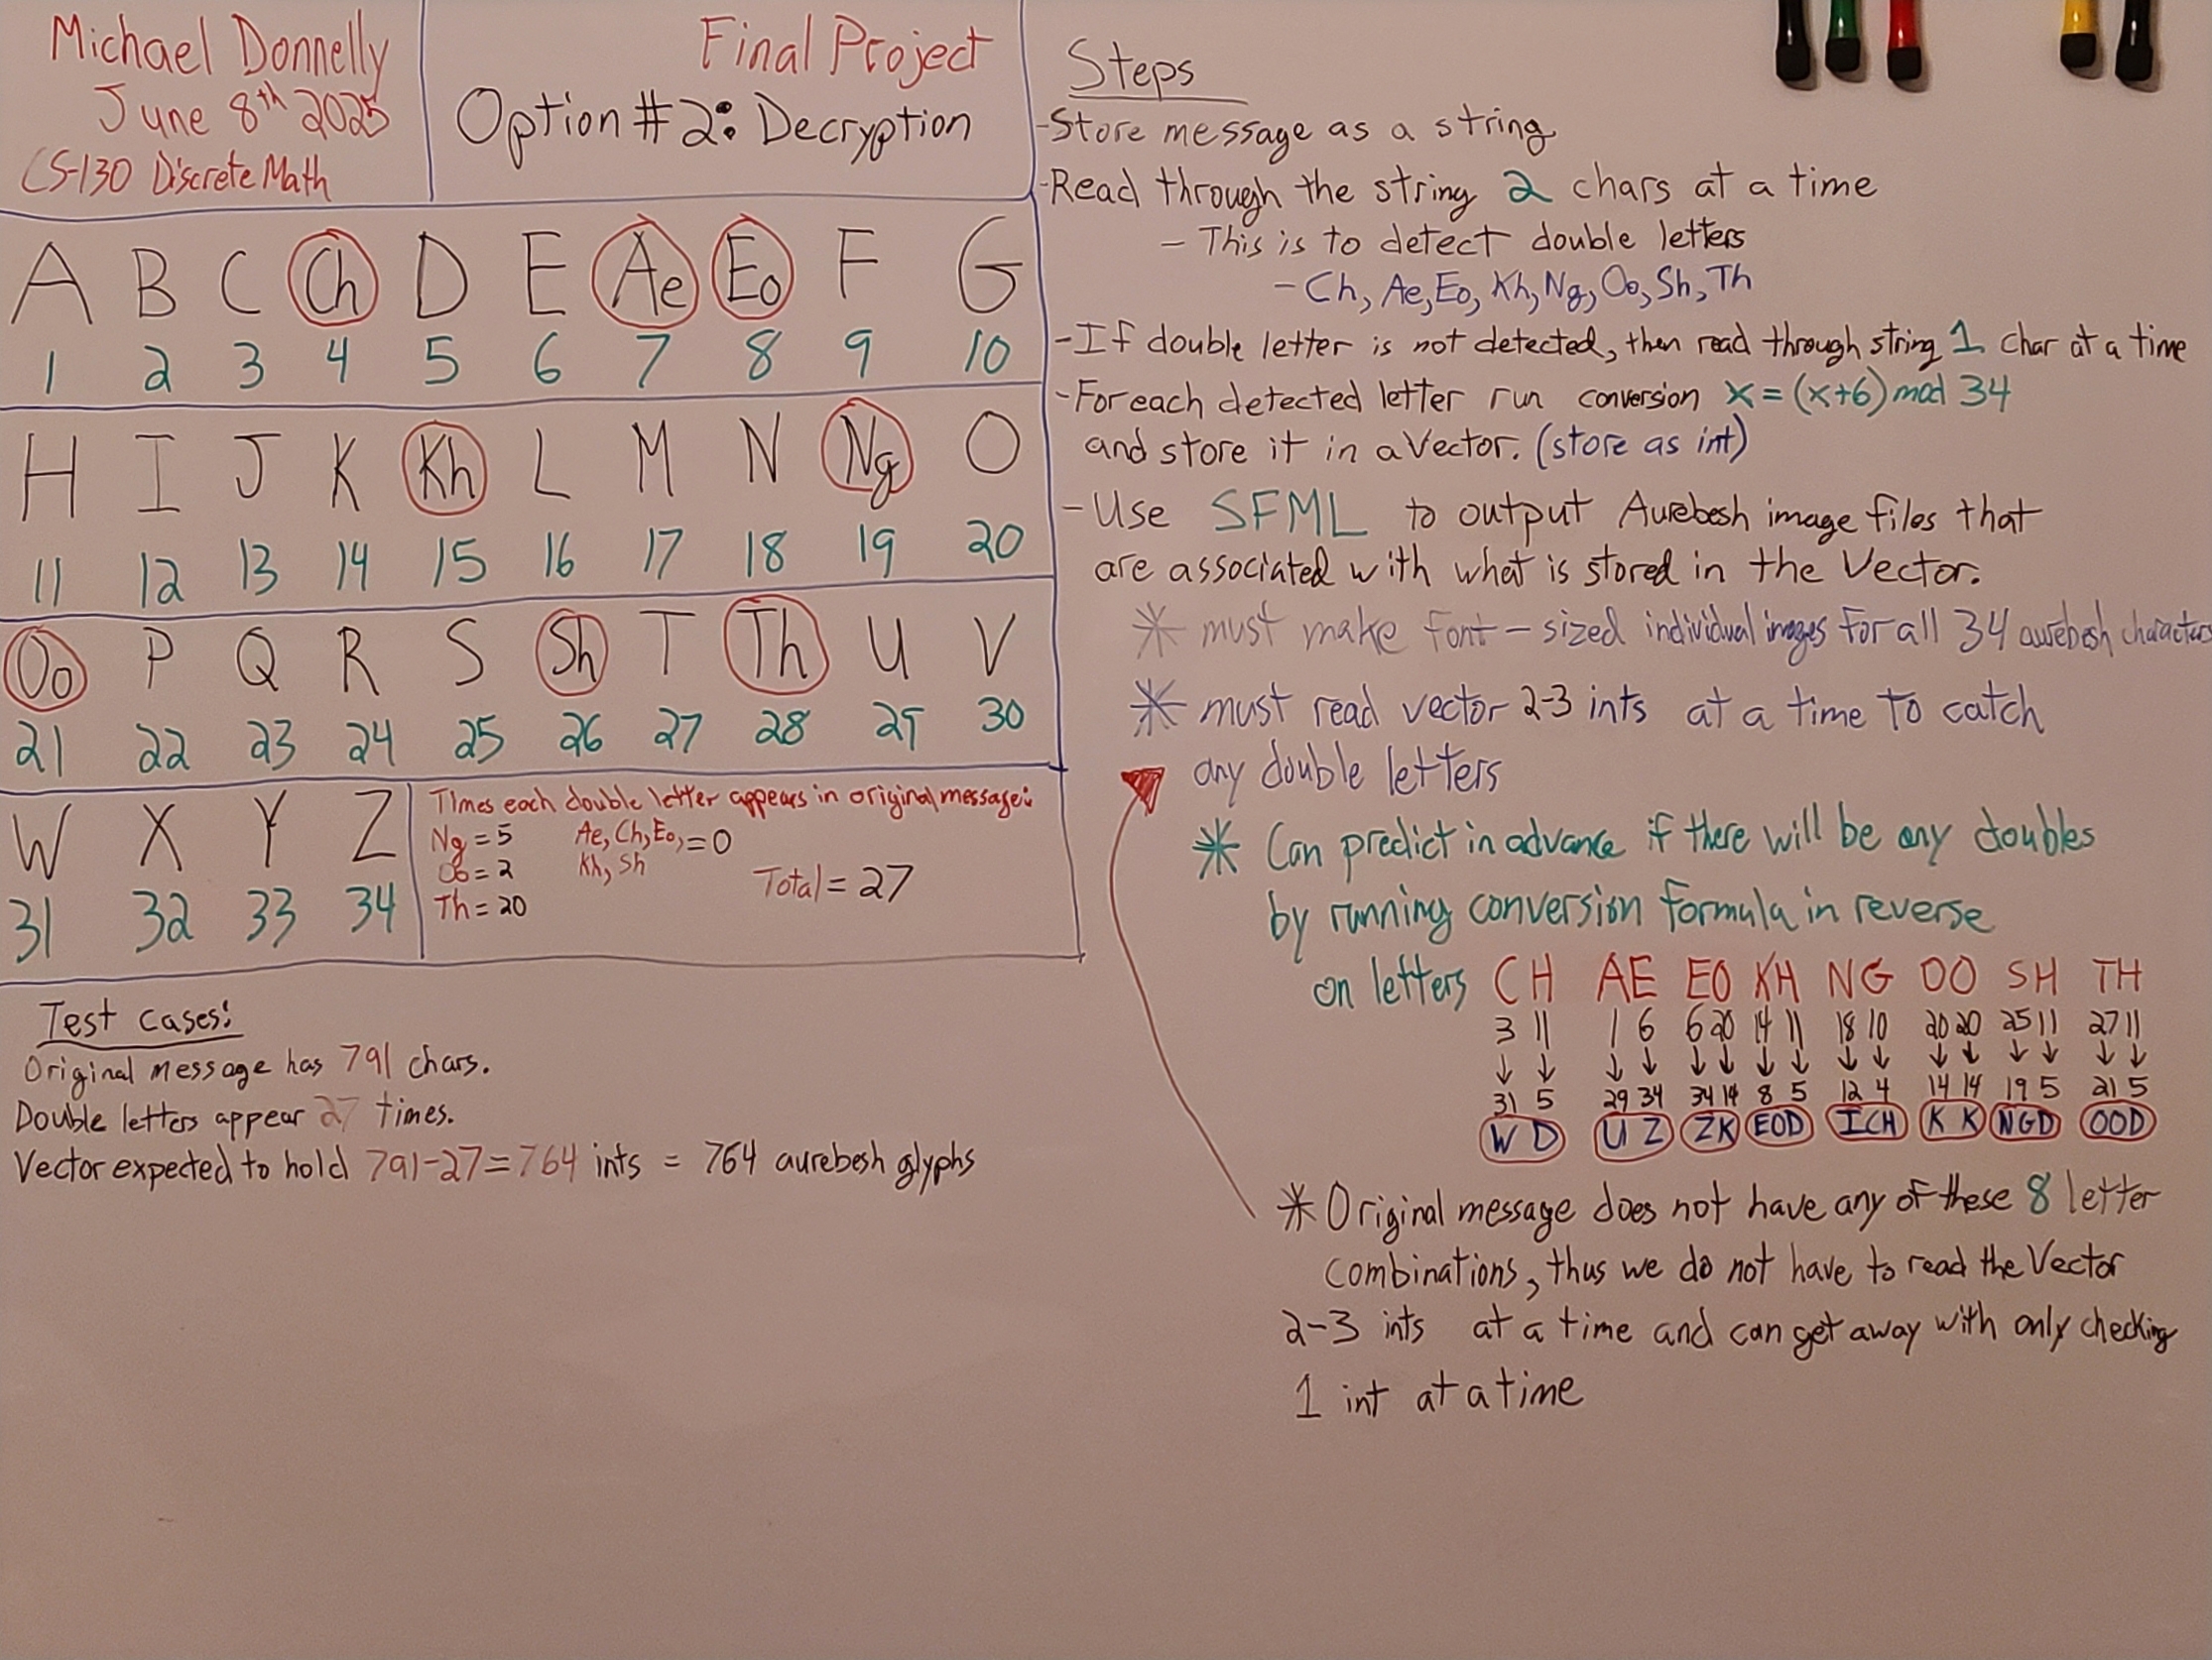 Michael Donnelly
June 8th 2025
CS-130 Discrete Math
Final Project
Option #2: Decryption
A B C Ch D E Ae Eo F G
1 2 3 4 5 6 7 8 9 10
H I J K Kh L M N Ng O
11 12 13 14 15 16 17 18 19 20
Oo P Q R S Sh T Th U V
21 22 23 24 25 26 27 28 29 30
W X Y Z
31 32 33 34
Times each double letter appears in original message:
Ng = 5 Ae, Ch, Eo, = 0
Oo = 2 Kh, Sh
Total = 27
Th = 20
Test cases:
Original message has 791 chars.
Double letters appear 27 times.
Vector expected to hold 791-27=764 ints = 764 aurebesh glyphs
Steps
-Store message as a string
-Read through the string 2 chars at a time
- This is to detect double letters
- Ch, Ae, Eo, Kh, Ng, Oo, Sh, Th
-If double letter is not detected, then read through string 1 char at a time
-For each detected letter run conversion x = (x+6) mod 34
and store it in a Vector. (store as int)
- Use SFML to output Aurebesh image files that
are associated with what is stored in the Vector.
* must make font-sized individual images for all 34 aurebesh characters
* must read vector 2-3 ints at a time to catch
any double letters
* Can predict in advance if there will be any doubles
by running conversion formula in reverse
on letters CH AE EO KH NG OO SH TH
3 11 1 6 6 20 14 11 18 10 20 20 25 11 27 11
↓ ↓ ↓ ↓ ↓ ↓ ↓ ↓ ↓ ↓ ↓ ↓ ↓ ↓ ↓ ↓
31 5 29 34 34 14 8 5 12 4 14 14 19 5 21 5
W D U Z ZK EOD ICH K K NGD OOD
* Original message does not have any of these 8 letter
combinations, thus we do not have to read the Vector
2-3 ints at a time and can get away with only checking
1 int at a time